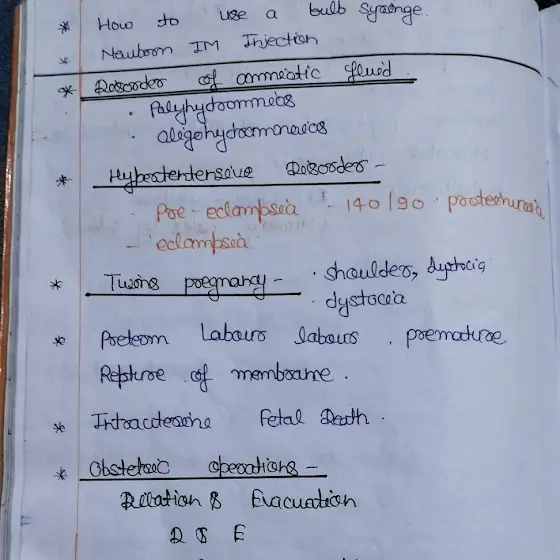 * How to use a bulb syringe.
* Newborn IM Injection
* Disorder of amniotic fluid.
· Palyhydroamneos
· oligohydroamneios
* Hypertentensive Disorder -
- Pre - eclampsia - 140/90 · protechinuria
- eclampsia
* Twins pregnancy - · shoulder, dystocia
· dystocia
* Preterm Labour labour . premature
Repture of membrane .
* Intracuterine Fetal Death .
* Obstetric operations -
Dilation & Evacuation
D & E